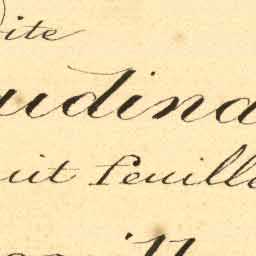 ite
udina
uit feuille